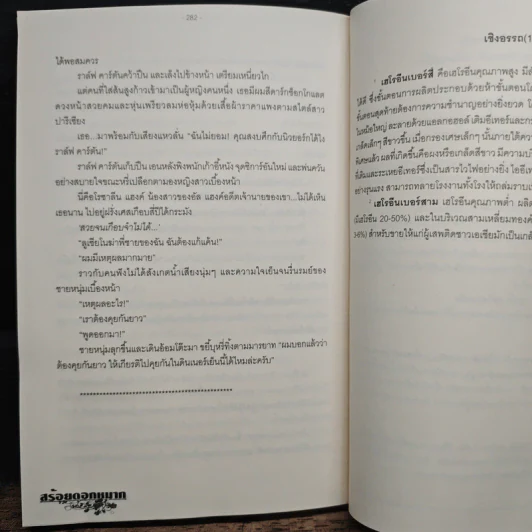 - 282 -
ได้พอสมควร
ราล์ฟ คาร์ตันคว้าปืน และเล็งไปข้างหน้า เตรียมเหนี่ยวไก
แต่คนที่ใส่ส้นสูงก้าวเข้ามาเป็นผู้หญิงคนหนึ่ง เธอมีผมสีดาร์กช็อกโกแลต
ดวงหน้าสวยคมและหุ่นเพรียวลมห่อหุ้มด้วยเสื้อผ้าราคาแพงตามสไตล์สาว
ปารีเซียง
เธอ...มาพร้อมกับเสียงแหวลั่น "ฉันไม่ยอม! คุณสงบศึกกับนิวยอร์กได้ไง
ราล์ฟ คาร์ตัน!"
ราล์ฟ คาร์ตันเก็บปืน เอนหลังพิงพนักเก้าอี้หนัง จุดซิการ์อันใหม่ และพ่นควัน
อย่างสบายใจขณะหรี่เปลือกตามองหญิงสาวเบื้องหน้า
นี่คือโรซาลีน แฮงค์ น้องสาวของอัล แฮงค์อดีตเจ้านายของเขา...ไม่ได้เห็น
เธอนาน ไปอยู่ฝรั่งเศสเกือบสี่ปีได้กระมัง
'สวยจนเกือบจำไม่ได้...'
"ลูเซียโนฆ่าพี่ชายของฉัน ฉันต้องแก้แค้น!"
"ผมมีเหตุผลมากมาย"
ราวกับคนฟังไม่ได้สังเกตน้ำเสียงนุ่มๆ และความใจเย็นจนรื่นรมย์ของ
ชายหนุ่มเบื้องหน้า
"เหตุผลอะไร!"
"เราต้องคุยกันยาว"
"พูดออกมา!"
ชายหนุ่มลุกขึ้นและเดินอ้อมโต๊ะมา ขยี้บุหรี่ทิ้งตามมารยาท "ผมบอกแล้วว่า
ต้องคุยกันยาว ให้เกียรติไปคุยกันในดินเนอร์เย็นนี้ได้ไหมล่ะครับ"
**********************************************
สร้อยดอกหมาก
เชิงอรรถ(1
¹ เฮโรอีนเบอร์สี่ คือเฮโรอีนคุณภาพสูง มีสี
ได้ดี ซึ่งขั้นตอนการผลิตประกอบด้วยห้าขั้นตอนโด
ขั้นตอนสุดท้ายต้องการความชำนาญอย่างยิ่งยวด โ
ในหม้อใหญ่ ละลายด้วยแอลกอฮอล์ เติมอีเทอร์และกร
เกล็ดเล็กๆ สีขาวขึ้น เมื่อกรองเศษเล็กๆ นั้นภายใต้ควา
พิเศษแล้ว ผลที่เกิดขึ้นคือผงหรือเกล็ดสีขาว มีความบริ
ที่เติมและระเหยอีเทอร์ซึ่งเป็นสารไวไฟอย่างยิ่ง ไออีเท
อย่างรุนแรง สามารถทลายโรงงานทั้งโรงให้ถล่มราบเ
² เฮโรอีนเบอร์สาม เฮโรอีนคุณภาพต่ำ ผลิต
(เฮโรอีน 20-50%) และในบริเวณสามเหลี่ยมทองคำ
%) สำหรับขายให้แก่ผู้เสพติดชาวเอเชียมักเป็นเกล็